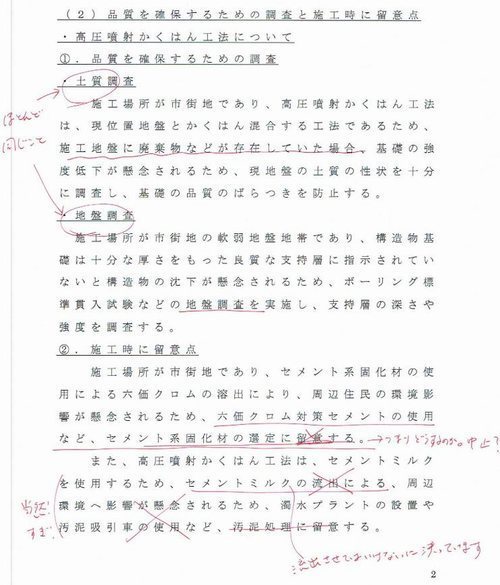 (2)品質を確保するための調査と施工時に留意点
・高圧噴射かくはん工法について
①.品質を確保するための調査
・土質調査
施工場所が市街地であり、高圧噴射かくはん工法
は、現位置地盤とかくはん混合する工法であるため、
施工地盤に廃棄物などが存在していた場合、基礎の強
度低下が懸念されるため、現地盤の土質の性状を十分
に調査し、基礎の品質のばらつきを防止する。
ほとんど
同じこと
・地盤調査
施工場所が市街地の軟弱地盤地帯であり、構造物基
礎は十分な厚さをもった良質な支持層に指示されてい
ないと構造物の沈下が懸念されるため、ボーリング標
準貫入試験などの地盤調査を実施し、支持層の深さや
強度を調査する。
②.施工時に留意点
施工場所が市街地であり、セメント系固化材の使
用による六価クロムの溶出により、周辺住民の環境影
響が懸念されるため、六価クロム対策セメントの使用
など、セメント系固化材の選定に留意する。
→つまりどうするのか。中止?
また、高圧噴射かくはん工法は、セメントミルク
を使用するため、セメントミルクの流出による、周辺
環境へ影響が懸念されるため、濁水プラントの設置や
汚泥吸引車の使用など、汚泥処理に留意する。
当然
すぎ!
流出させてはいけないに決っています
2